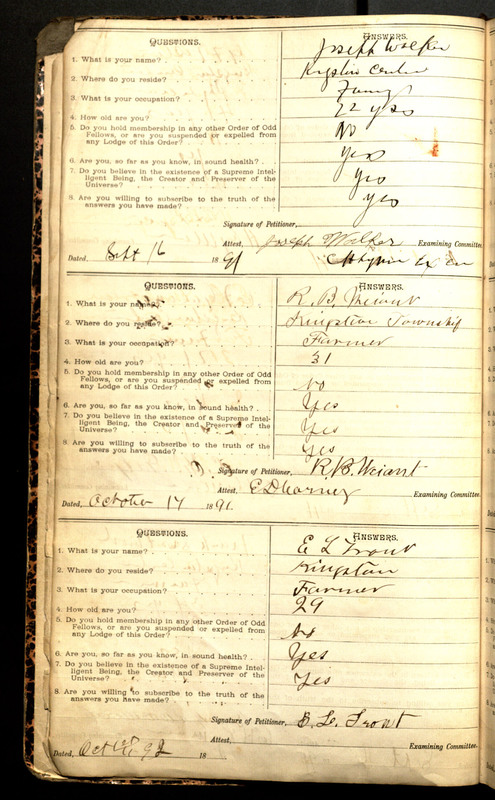 QUESTIONS. ANSWERS.
1. What is your name? Joseph Walker
2. Where do you reside? Kingston Center
3. What is your occupation?
4. How old are you? 22 yrs
5. Do you hold membership in any other Order of Odd
Fellows, or are you suspended or expelled from
any Lodge of this Order? No
6. Are you, so far as you know, in sound health? Yes
7. Do you believe in the existence of a Supreme Intel-
ligent Being, the Creator and Preserver of the
Universe? Yes
8. Are you willing to subscribe to the truth of the
answers you have made? Yes
Signature of Petitioner,
Attest, Joseph Walker Examining Committee
Dated, Sept 16 1891
QUESTIONS. ANSWERS.
1. What is your name? R. B. Weiant
2. Where do you reside? Kingston Township
3. What is your occupation? Farmer
4. How old are you? 31
5. Do you hold membership in any other Order of Odd
Fellows, or are you suspended or expelled from
any Lodge of this Order? No
6. Are you, so far as you know, in sound health? Yes
7. Do you believe in the existence of a Supreme Intel-
ligent Being, the Creator and Preserver of the
Universe? Yes
8. Are you willing to subscribe to the truth of the
answers you have made? Yes
Signature of Petitioner, R. B. Weiant
Attest, Examining Committee.
Dated, October 17 1891.
QUESTIONS. ANSWERS.
1. What is your name? E L Trout
2. Where do you reside? Kingston
3. What is your occupation? Farmer
4. How old are you? 29
5. Do you hold membership in any other Order of Odd
Fellows, or are you suspended or expelled from
any Lodge of this Order? No
6. Are you, so far as you know, in sound health? Yes
7. Do you believe in the existence of a Supreme Intel-
ligent Being, the Creator and Preserver of the
Universe? Yes
8. Are you willing to subscribe to the truth of the
answers you have made?
Signature of Petitioner, E. L. Trout
Attest, Examining Committee.
Dated, Oct 92 18